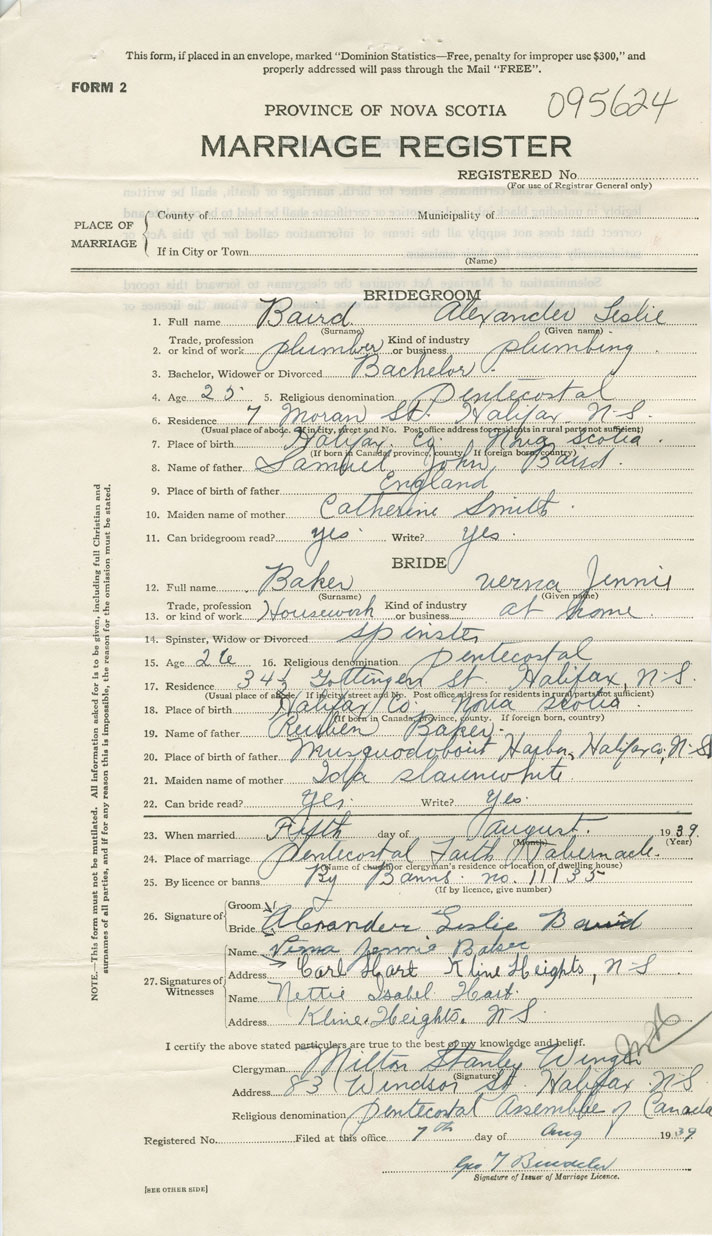 This form, if placed in an envelope, marked "Dominion Statistics—Free, penalty for improper use $300," and
properly addressed will pass through the Mail "FREE".
FORM 2
PROVINCE OF NOVA SCOTIA 095624
MARRIAGE REGISTER
REGISTERED No.
(For use of Registrar General only)
PLACE OF MARRIAGE
County of Municipality of
If in City or Town
(Name)
BRIDEGROOM
1. Full name Baird Alexander Leslie
(Surname) (Given name)
2. Trade, profession or kind of work plumber Kind of industry or business plumbing
3. Bachelor, Widower or Divorced Bachelor.
4. Age 25 5. Religious denomination Pentecostal
6. Residence 7 Moran St. Halifax N.S.
(Usual place of abode. If in city, street and No. Post office address for residents in rural parts not sufficient)
7. Place of birth Halifax Co. Nova Scotia
(If born in Canada, province, county. If foreign born, country)
8. Name of father Samuel John Baird.
9. Place of birth of father England
10. Maiden name of mother Catherine Smith.
11. Can bridegroom read? yes. Write? yes.
BRIDE
12. Full name Baker Verna Jennie
(Surname) (Given name)
13. Trade, profession or kind of work Housework Kind of industry or business at home
14. Spinster, Widow or Divorced spinster
15. Age 26 16. Religious denomination Pentecostal
17. Residence Gottingen St. Halifax, N.S.
(Usual place of abode. If in city, street and No. Post office address for residents in rural parts not sufficient)
18. Place of birth Halifax Co. Nova Scotia
(If born in Canada, province, county. If foreign born, country)
19. Name of father Reuben Baker.
20. Place of birth of father Musquodoboit Harbor, Halifax Co., N.S
21. Maiden name of mother Ida Slaunwhite
22. Can bride read? yes. Write? yes.
23. When married Fifth day of August. 1939
(Month) (Year)
24. Place of marriage Pentecostal Faith Tabernacle.
(Name of church or clergyman's residence or location of dwelling house)
25. By licence or banns By Banns. no. 11135
(If by licence, give number)
26. Signature of
Groom
Bride Alexander Leslie Baird
27. Signatures of Witnesses
Name Verna Jennie Baker
Address Carl Hart Kline Heights, N-S
Name Nettie Isabel Hart.
Address Kline Heights. N-S
I certify the above stated particulars are true to the best of my knowledge and belief.
Clergyman Milton Stanley Winger
(Signature)
Address 83 Windsor St. Halifax N.S.
Religious denomination Pentecostal Assemblies of Canada
Registered No. Filed at this office 7th day of Aug 1939
Geo
Signature of Issuer of Marriage Licence.
[SEE OTHER SIDE]
NOTE.—This form must not be mutilated. All Information asked for is to be given, including full Christian and
surnames of all parties, and if for any reason this is impossible, the reason for the omission must be stated.